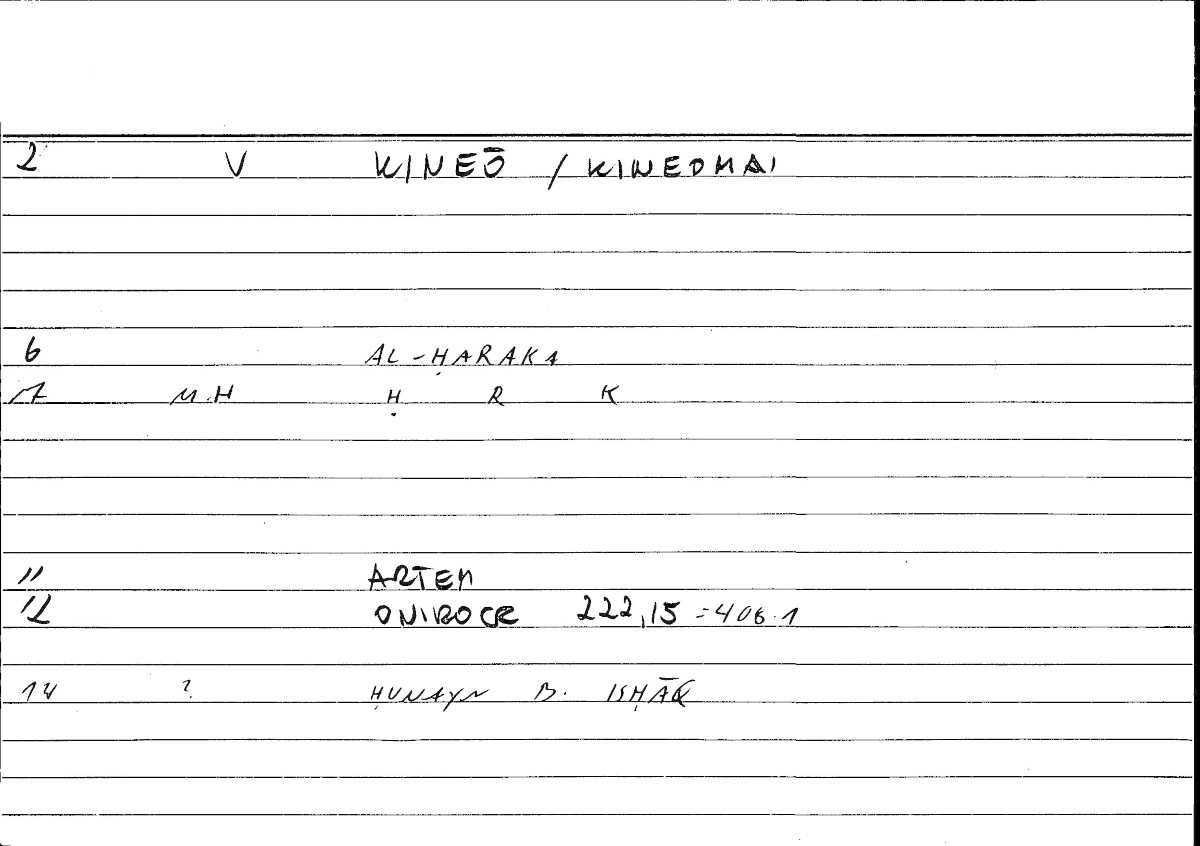 2 V KINEŌ / KINEOMAI
6 AL-ḤARAKA
7 M.H Ḥ R K
11 ARTEM
12 ONIROCR 222,15 = 406.1
14 ? ḤUNAYN B. ISḤĀQ